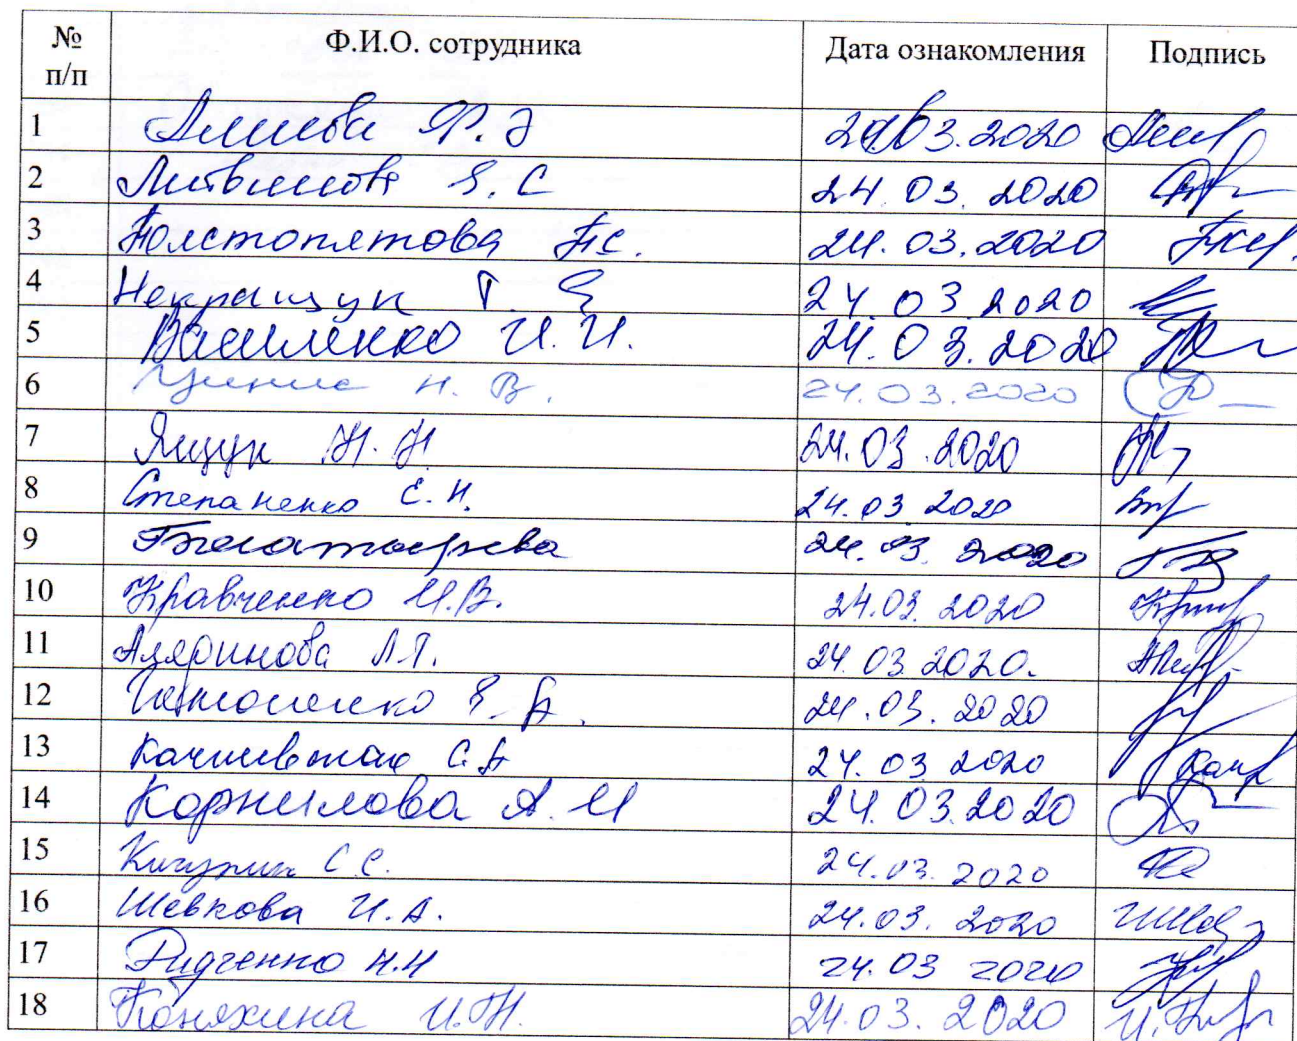 № п/п Ф.И.О. сотрудника Дата ознакомления Подпись
1 Алиева Ф. Э 24.03.2020
2 Литвинова Е. С 24.03.2020
3 Толстопятова Т.С. 24.03.2020
4 Некращук Т. Е 24.03.2020
5 Василенко И. И. 24.03.2020
6 Н. В. 24.03.2020
7 Ящук Н. Н 24.03.2020
8 Степаненко Е. Н. 24.03.2020
9 Богатырева 24.03.2020
10 Кравченко И.В. 24.03.2020
11 24.03.2020.
12 24.03.2020
13 С.А 24.03.2020
14 Корнилова А. И 24.03.2020
15 Кичурин С.С. 24.03.2020
16 Шевкова И.А. 24.03.2020
17 Н.Н 24.03 2020
18 Коняхина И.Н. 24.03.2020